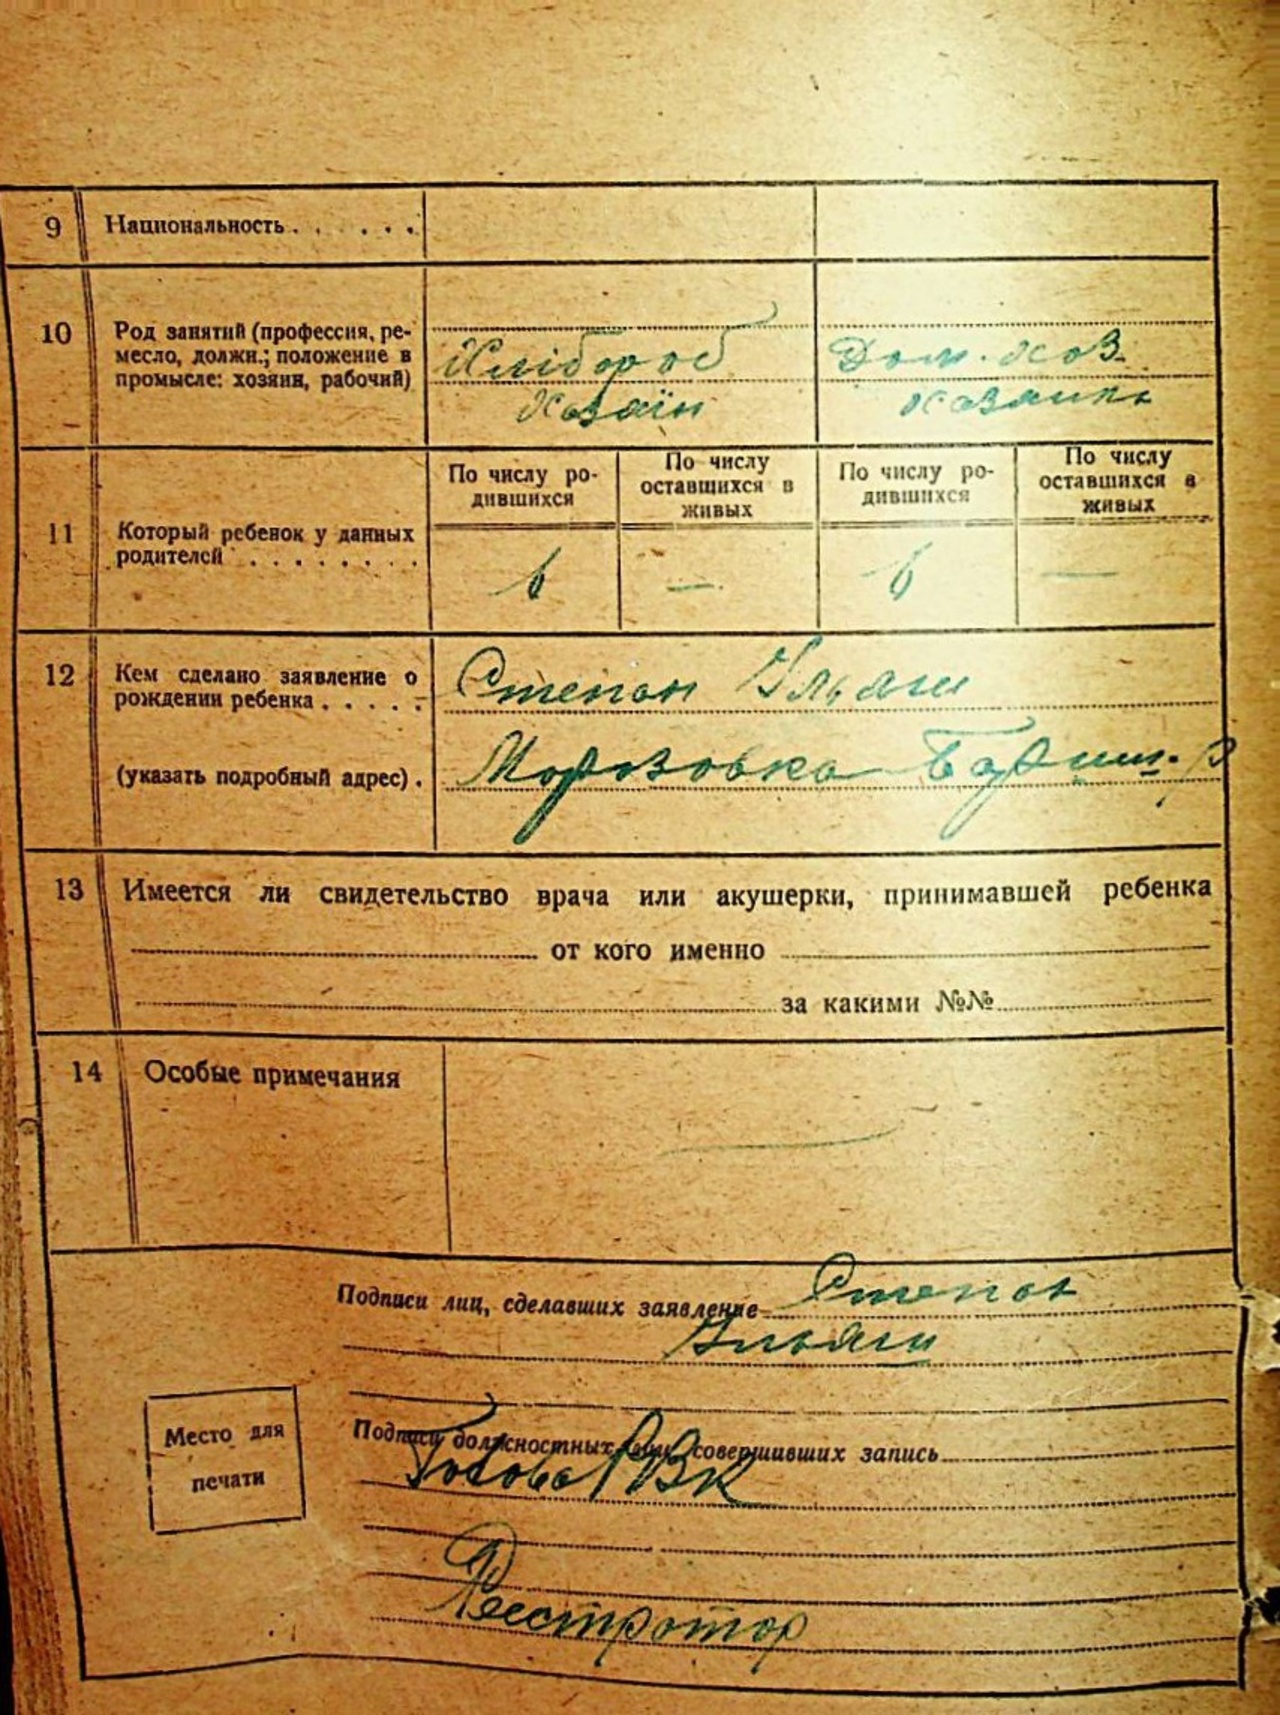 9 Национальность . . . . . .
10 Род занятий (профессия, ре-
месло, должн.; положение в
промысле: хозяин, рабочий)
Хлібороб
Хазяїн
Дом. хоз.
хазяйка
11 Который ребенок у данных
родителей . . . . . . . .
По числу ро-
дившихся
По числу
оставшихся в
живых
По числу ро-
дившихся
По числу
оставшихся в
живых
6 — 6 —
12 Кем сделано заявление о
рождении ребенка . . . . .
(указать подробный адрес) .
Степан Ільяш
Морозовка Бориш. р
13 Имеется ли свидетельство врача или акушерки, принимавшей ребенка
от кого именно
за какими №№
14 Особые примечания
—
Подписи лиц, сделавших заявление Степан
Ільяш
Место для
печати
Подписи должностных лиц, совершивших запись
Голова РВК
Реєстратор